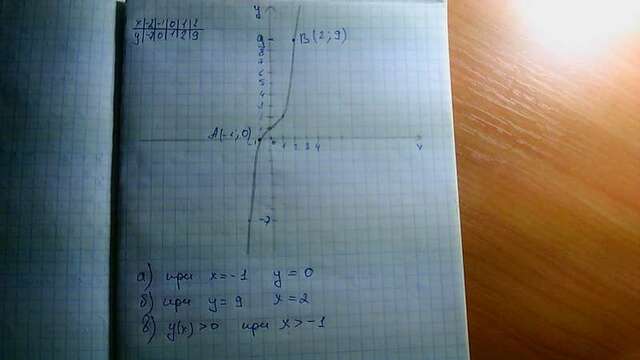 x -2 -1 0 1 2
y -7 0 1 2 9
y
9
8
7
6
5
4
B(2;9)
A(-1;0)
-1 1 2 3 4 x
-7
а) при x=-1 y=0
б) при y=9 x=2
в) y(x)>0 при x>-1